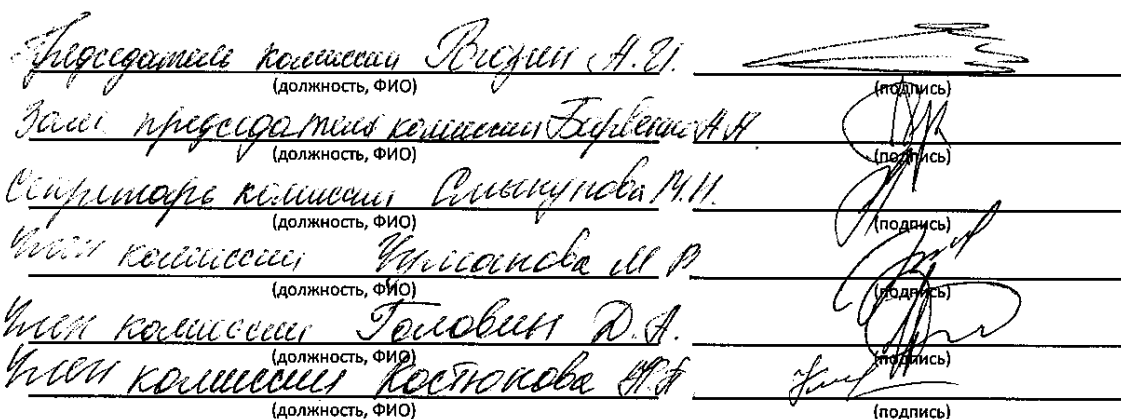 Председатель комиссии А.И.
(должность, ФИО) (подпись)
Зам. председателя комиссии
(должность, ФИО) (подпись)
Секретарь комиссии М.Н.
(должность, ФИО) (подпись)
Член комиссии М В
(должность, ФИО) (подпись)
Член комиссии Головин Д.А.
(должность, ФИО) (подпись)
Член комиссии Костюкова
(должность, ФИО) (подпись)